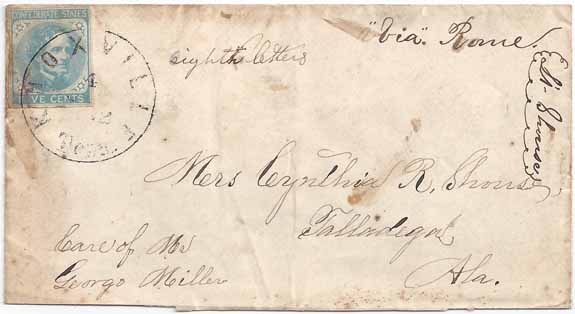 CONFEDERATE STATES
VE CENTS
KNOXVILLE
4
Tenn.
eighth letters
"Via" Rome
Mrs Cynthia R. Shouse
Talladega
Ala.
Care of Mr
George Miller